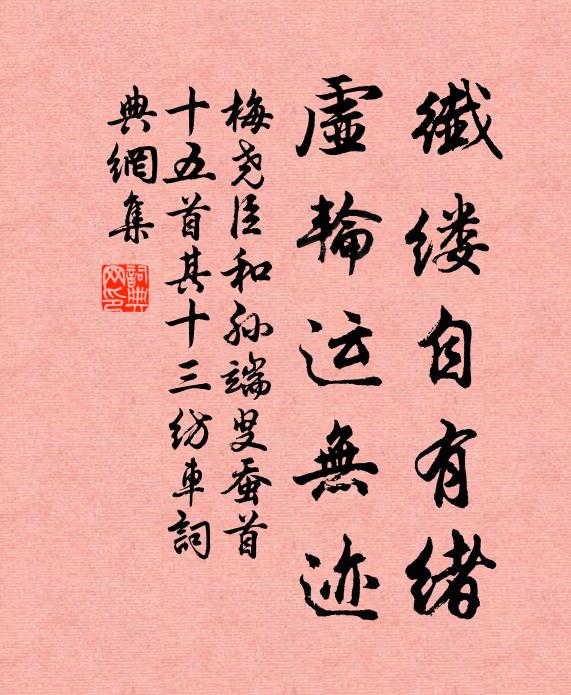 纖缕自有緒
虛輪运無迹
梅尧臣和孙端叟蚕首
十五首其十三纺车詞
典網集
詞典网印